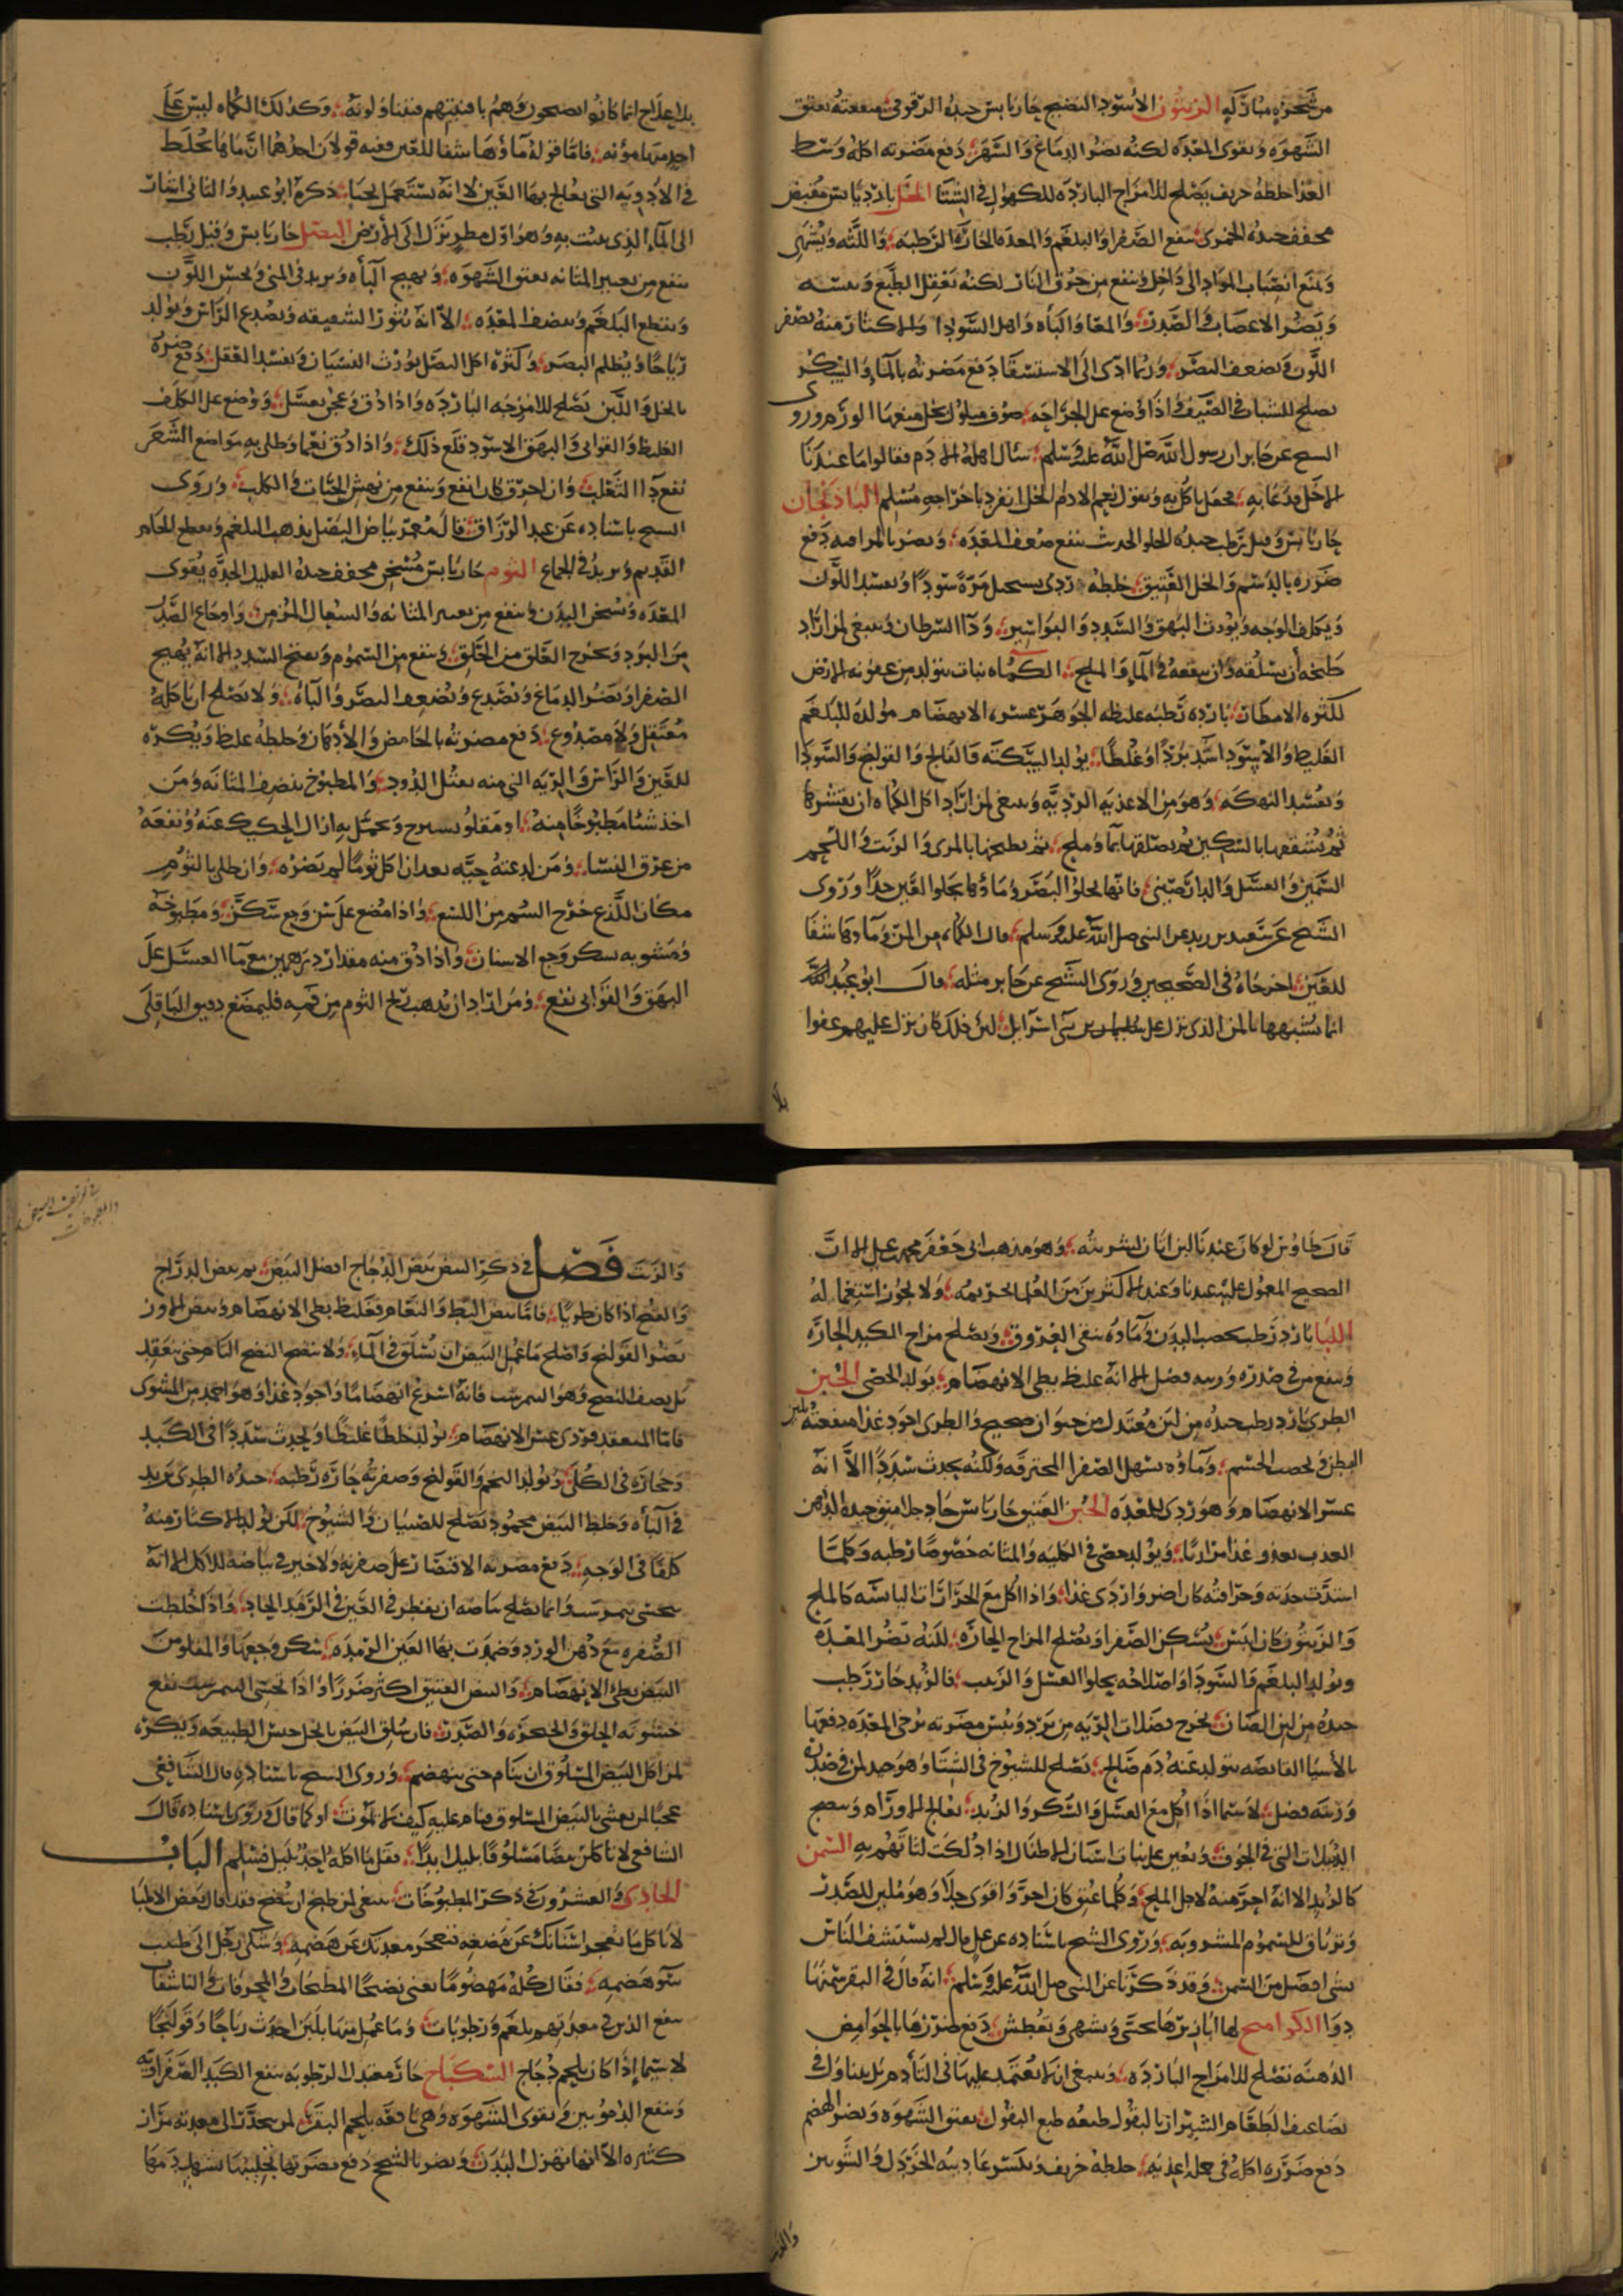 من شجرة مباركة الزيتون الأسود النضيج حار يابس جيده الدقوقي منفعته يعتق
الشهوة ويقوى المعدة لكنه يضر الدماغ والسهر دفع مضرته اكله وسط
الغذا خلطه حريف يصلح للامزاج الباردة للكهول في الشتا الخل بارد يابس مقبض
مجفف جيده الخمري ينفع الصفرا والبلغم والمعدة الحارة الرطبة واللثه ويشهي
ويمنع انصباب المواد الى داخل وينفع من حرق النار لكنه يعقل الطبع
ويضر الاعصاب والصدر والمعا والباه واهل السودا والاكثار منه يصفر
اللون ويضعف البصر وربما ادى الى الاستسقا دفع مضرته بالماء والسكر
يصلح للشباب في الصيف واذا وضع على الجراحه صوف مبلول بخل منعها الورم وروى
الشيخ عن جابر ان رسول الله صلى الله عليه وسلم سئال اهله الادم فقالوا ما عندنا
الا خل فدعا به فجعل ياكل به ويقول نعم الادم الخل انفرد باخراجه مسلم الباذنجان
حار يابس وقيل رطب جيده الحلو الحديث ينفع ضعف المعده ويضر بالمراضه دفع
ضرره بالدسم والخل العتيق خلطه ردي يستحيل مرة سودا ويفسد اللون
ويكلف الوجه ويورث البهق والسدد والبواسير ودآ السرطان وينبغي لمن اراد
طبخه أن يسلقه وان ينقعه في الماء والملح الكماه نبات يتولد من عفونه الارض
لكثره الامطار باردة رطبه غليظه الجوهر عسره الانهضام مولدة للبلغم
الغليظ والاسود اشد بردا وغلظا يولد السكته والفالج والقولنج والسودا
ويفسد النهكه وهو من الاغذيه الرديه وينبغى لمن اراد اكل الكماه ان يقشرها
ثم يشققها بالسكين ثم يصلقها بماء وملح ثم يطبخها بالمرى والزيت واللحم
السمين والعسل والدارصيني فانها تجلوا البصر وماؤها يجلوا العين جدا وروى
الشيخ عن سعيد بن زيد عن النبي صلى الله عليه وسلم قال الكماه من المن وماوها شفا
للعين اخرجاه في الصحيحين وروى الشيخ عن جابر مثله قال ابو عبد الله
انما شبهها بالمن الذي نزل على بني اسرائيل لئن ذلك كان ينزل عليهم عفوا
بلا
بلا علاج انما كانوا يصبحون وهم بافنيتهم فيتناولونه وكذلك الكماه ليس على
احد منها مؤنه فاما قوله ماؤها شفا للعين ففيه قولان احدهما ان ماها يخلط
في الأدوية التي يعالج بها العين لا انه يستعمل بحتا ذكره ابو عبيد والثاني اشارت
الى الماء الذي ينبت به وهو اول مطر ينزل الى الأرض البصل حار يابس وقيل رطب
ينفع من تغير المياه يعتق الشهوة ويهيج الباه ويزيد في المني ويحسن اللون
ويقطع البلغم وينضف المعدة الا انه يثور الشقيقه ويصدع الراس ويولد
رياحا ويظلم البصر وكثرة اكل البصل يورث النسيان ويفسد العقل دفع ضرره
بالخل واللبن يصلح للامزجه الباردة واذا دق وعجن بعسل ووضع على الكلف
الغليظ والقوابى والبهق الاسود قلع ذلك واذا دق نعما وطلى به مواضع الشعر
نفع دآ الثعلب وان احرق كان انفع وينفع من نهش الحيات والكلب وروى
الشيخ باسناده عن عبد الرزاق قال معمر بياض البصل يذهب البلغم ويقطع الحام
القديم ويزيد في الجماع الثوم حار يابس مسخن مجفف جيده القليل الحدة يقوى
المعدة ويسخن البدن وينفع من تغير المياه والسعال المزمن واوجاع الصدر
من البرد ويخرج العلق من الحلق وينفع من السموم ويفتح السدد الا انه يهيج
الصفرا ويضر الدماغ ويصدع ويضعف البصر والباه ولا يصلح ان ياكله
معتقل ولا مصدوع دفع مضرته بالحامض والأدهان وخلطه غليظ ويكره
للعين والراس والريه التي منه يقتل الدود والمطبوخ ينضف المثانه ومن
اخذ شئا مطبوخا منه او مقلو بسيرج وتحمل به ازال الحكيك عنه ونفعه
من عرق النسا ومن لدغته حيه بعد ان اكل ثوما لم يضره وان طلى بالثوم
مكان اللدغ خرج السم من اللسع واذا مضغ على سن وجع سكن ومطبوخه
ومشويه يسكر وجع الاسنان واذا دق منه مقدار درهمين مع ماا العسل على
البهق والقوابى نفع ومن اراد ان يذهب ريح الثوم من فمه فليمضغ دقيق الباقلى
قال طاوس لو كان عندنا لبن اتان لشربته وهو مذهب ابى جعفر محمد بن علي الا ان
الصحيح المعول عليه عندنا وعند الاكثرين من العلما تحريمه ولا يجوز استعماله
اللبا بارد رطب يخصب البدن وماؤه ينقى العروق ويصلح مزاج الكبد الحارة
وينفع من في صدره وريته فضل الا انه غليظ بطي الانهضام يولد الحصى الجبن
الطري بارد رطب جيده من لبن معتدل من حيوان صحيح والطرى اجود غذا منفعته يلين
البطن ويخصب الجسم وماؤه يسهل الصفرا المحترقه ولكنه يحدث سددا الا انه
عسر الانهضام وهو ردي للمعده الجبن العتيق حار يابس حاد جلا منق جيده الدهن
العذب يغذو غذا مرارئا ويولد حصى في الكليه والمثانه خصوصا رطبه وكلما
اشتدت حدته وحرافته كان اضر واردى غذا واذا اكل مع الحرارات اليابسه كالملح
والزيتون كان ايبس يسكن الصفرا ويصلح المزاج الحاره لكنه يضر المعده
ويولد البلغم والسودا واصلاحه بحلوا العسل والزبيب فالزبد حار رطب
جيده من لبن الضان يخرج فضلات الريه من برد ويبس مضرته يرخى المعده دفعها
بالأشيا القابضه يتولد عنه دم صالح يصلح للشيوخ في الشتا وهو جيد لمن في صدره
وريته فضل لاسيما اذا اكل مع العسل والسكر والزبد يعالج الاورام وينضج
الدبيلات التي في الجوف ويعين على نبات اسنان الاطفال اذا دلكت لثاتهم به السمن
كالزبد الا انه احر منه لاجل الملح وكلما عتق كان احر واقوى جلا وهو ملين للصدر
وترياق للسموم المشروبه وروى الشيخ باسناده عن على قال لم يستشف الناس
بشى افضل من السمن وقد ذكرنا عن النبي صلى الله عليه وسلم انه قال في البقر سمنها
دوا الكوامخ لها ابازيرها يحشى ويشهى وتعطش دفع ضررها بالحوامض
الدهنه تصلح للامزاج البارده وينبغي ان لا يعتمد عليها في التأدم بل يتناول في
تضاعيف الطعام الشيراز بالبقول طبعه طبع البقول يعتق الشهوة ويضر الهضم
دفع ضرره اكله في جمله اغذيه خلطه حريف وتكسر عاديته الخردل والشونيز
والزيت
والزيت فصل في ذكر البيض بيض الدجاج افضل البيض ثم بيض الدراج
والقبج اذا كان طريا فاما بيض البط والنعام فغليظ بطى الانهضام وبيض الاوز
يضر القولنج واصلح ما عمل البيض ان يسلق في الماء ولا ينضج النضج التام حتى ينعقد
بل نصف النضج وهو النيمرشت فانه اسرع انهضاما واجود غذا وهو احمد من المشوى
فاما المنعقد فردى عسر الانهضام يولد خلطا غليظا ويحدث سددا في الكبد
وحجارة في الكلى ويولد التخم والقولنج وصفرته حاره رطبه جيده الطري يزيد
في الباه وخلط البيض محمود يصلح للصبيان والشيوخ لكن يولد الاكثار منه
كلفا في الوجه دفع مضرته الاقتصار على صفرته ولا خير في بياضه للاكل الا انه
يتحسى نيمرشت وانما يصلح بياضه ان يقطر في العين في الرمد الحاد واذا خلطت
الصفره مع دهن الورد وضمدت بها العين الرمده سكن وجعها والمقلو من
البيض بطئ الانهضام والبيض العتيق اكثر ضررا واذا تحسى النيمرشت نفع
خشونه الحلق والحنجره والصدر فان سلق البيض بالخل حبس الطبيعه ويكره
لمن اكل البيض المسلوق ان ينام حتى ينهضم وروى الشيخ باسناده قال الشافعي
عجبا لمن تعشى بالبيض المسلوق فنام عليه كيف لا يموت او كما قال وروى باسناده قال
الشافعي لا تاكلن بيضا مسلوقا بليل ابدا فقل ما اكله احد بليل فسلم الباب
الحادي والعشرون في ذكر المطبوخات ينبغى لمن طبخ ان ينضج فقد قال بعض الاطبا
لا تاكل ما تعجز اسنانك عن مضغه فتعجز معدتك عن هضمه وشكى رجل الى طبيب
سو هضمه فقال كله مهضوما يعنى نضجا المطجنات والمحرفات والناشفات
ينفع الذين في معدتهم بلغم ورطوبات وما عمل منها بلبن احدث رياحا وقولنجا
لاسيما إذا كان بلحم دجاج السكباج حار معتدل الرطوبه ينفع الكبد الصفراويه
وينفع الدمويين ويقوى الشهوة وهى نافعه بلحم البقر لمن ينحدر الى معدته مرار
كثيره الا انها تهزل البدن ويضر بالشحج دفع مضرتها تجليبها بسهل دمها